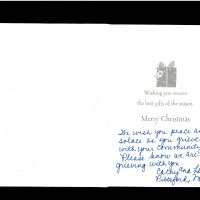 Wishing you receive
the best gifts of the season.
Merry Christmas
We wish you peace and
solace as you grieve
with your community.
Please know we are
grieving with you.
Cathy and
Pittsford,